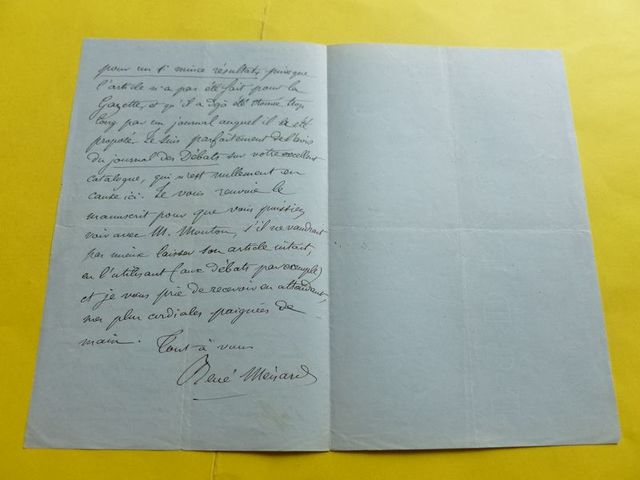 pour un si mince résultat, puisque
l'article n'a pas été fait pour la
Gazette, et qu'il a déjà été trouvé trop
long par un journal auquel il a été
proposé. Je suis parfaitement de l'avis
du journal des Débats sur votre excellent
catalogue, qui n'est nullement en
cause ici. Je vous renvoie le
manuscrit pour que vous puissiez
voir avec M. Mouton, s'il ne vaudrait
pas mieux laisser son article intact,
en l'utilisant (aux débats par exemple)
et je vous prie de recevoir en attendant
mes plus cordiales poignées de
main. Tout à vous
René Ménard